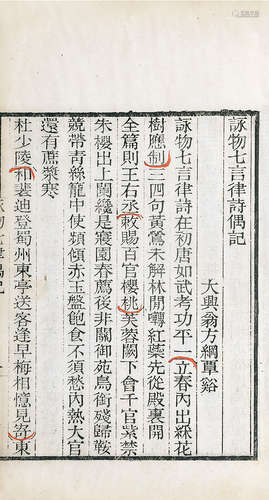 詠物七言律詩偶記
大興翁方綱覃谿
詠物七言律詩在初唐如武考功平一立春內出綵花
樹應制三四句黃鶯未解林間囀紅藥先從殿裏開
全篇則王右丞敕賜百官櫻桃芙蓉闕下會千官紫禁
朱櫻出上闌纔是寢園春薦後非關御苑鳥銜殘歸鞍
競帶青絲籠中使頻傾赤玉盤飽食不須愁內熱大官
還有蔗漿寒
杜少陵和裴迪登蜀州東亭送客逢早梅相憶見寄東